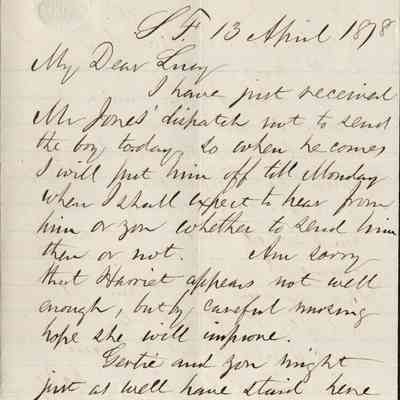 S.F. 13 April 1878
My Dear Lucy
I have just received
Mr Jones' dispatch not to send
the boy today, so when he comes
I will put him off till Monday
when I shall expect to hear from
him or you whether to send him
then or not. Am sorry
that Harriet appears not well
enough, but by careful nursing
hope she will improve.
Gertie and you might
just as well have staid here